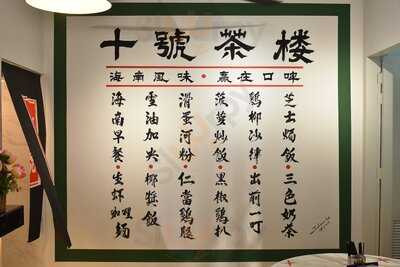 十號茶楼
海南風味•赢在口啤
芝士焗飯•三色奶茶
鷄柳沙律•出前一町
菠萝炒飯•黑椒鷄扒
滑蛋河粉•仁當鷄腿
油加央•椰漿飯
海南早餐•生虾咖喱麵